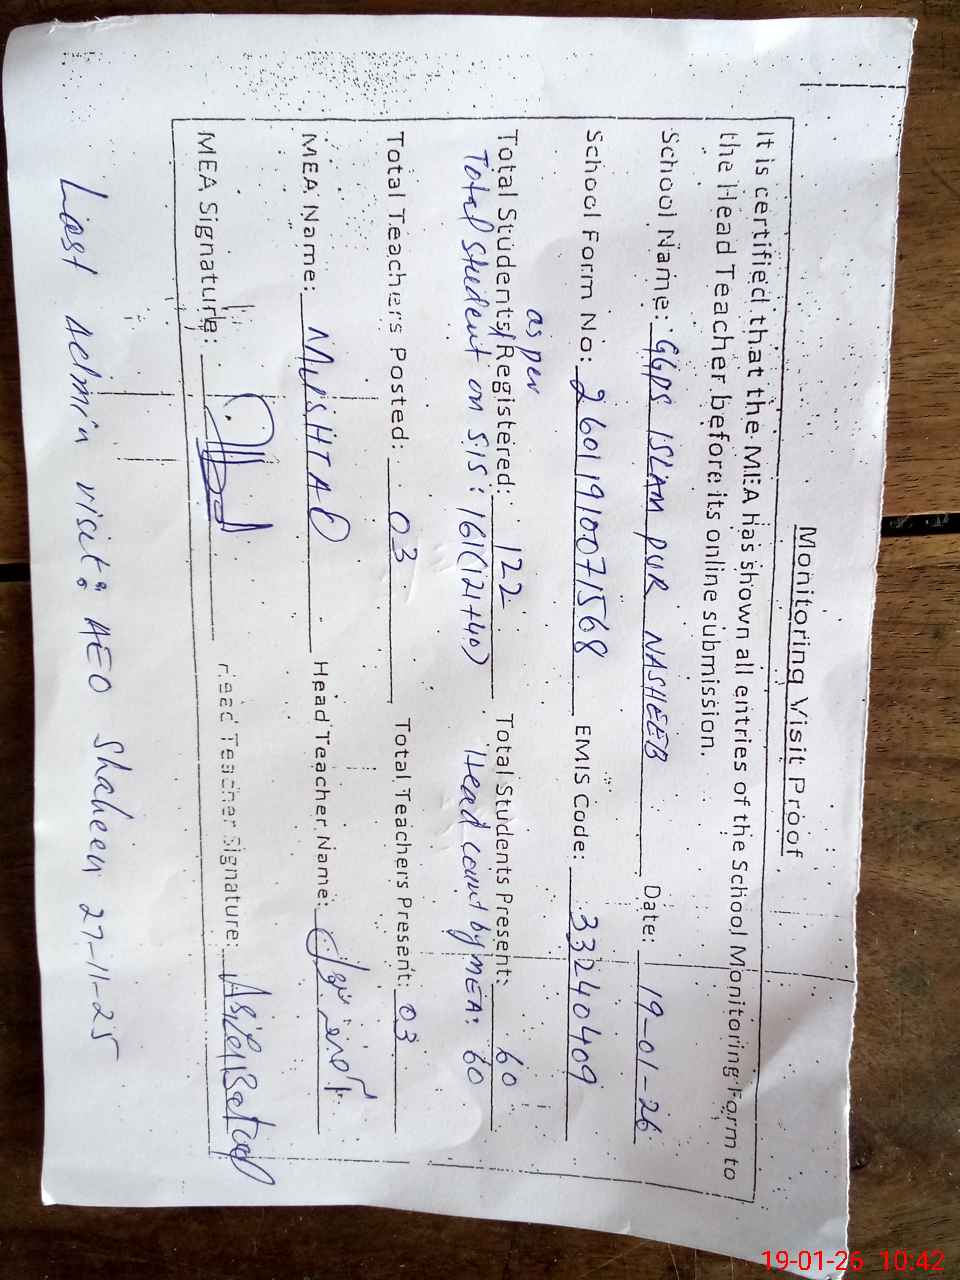 Monitoring Visit Proof
It is certified that the MEA has shown all entries of the School Monitoring Form to
the Head Teacher before its online submission.
School Name: GGPS ISLAM PUR NASHEEB Date: 19-01-26
School Form No: 26011910071568 EMIS Code: 33240409
as per
Total Students Registered: 122 Total Students Present: 60
Total student on SIS: 161(121+40) Head count by MEA: 60
Total Teachers Posted: 03 Total Teachers Present: 03
MEA Name: MUSHTAQ Head Teacher Name:
MEA Signature: Head Teacher Signature:
Last Admin visit: AEO Shaheen 27-11-25
19-01-26 10:42